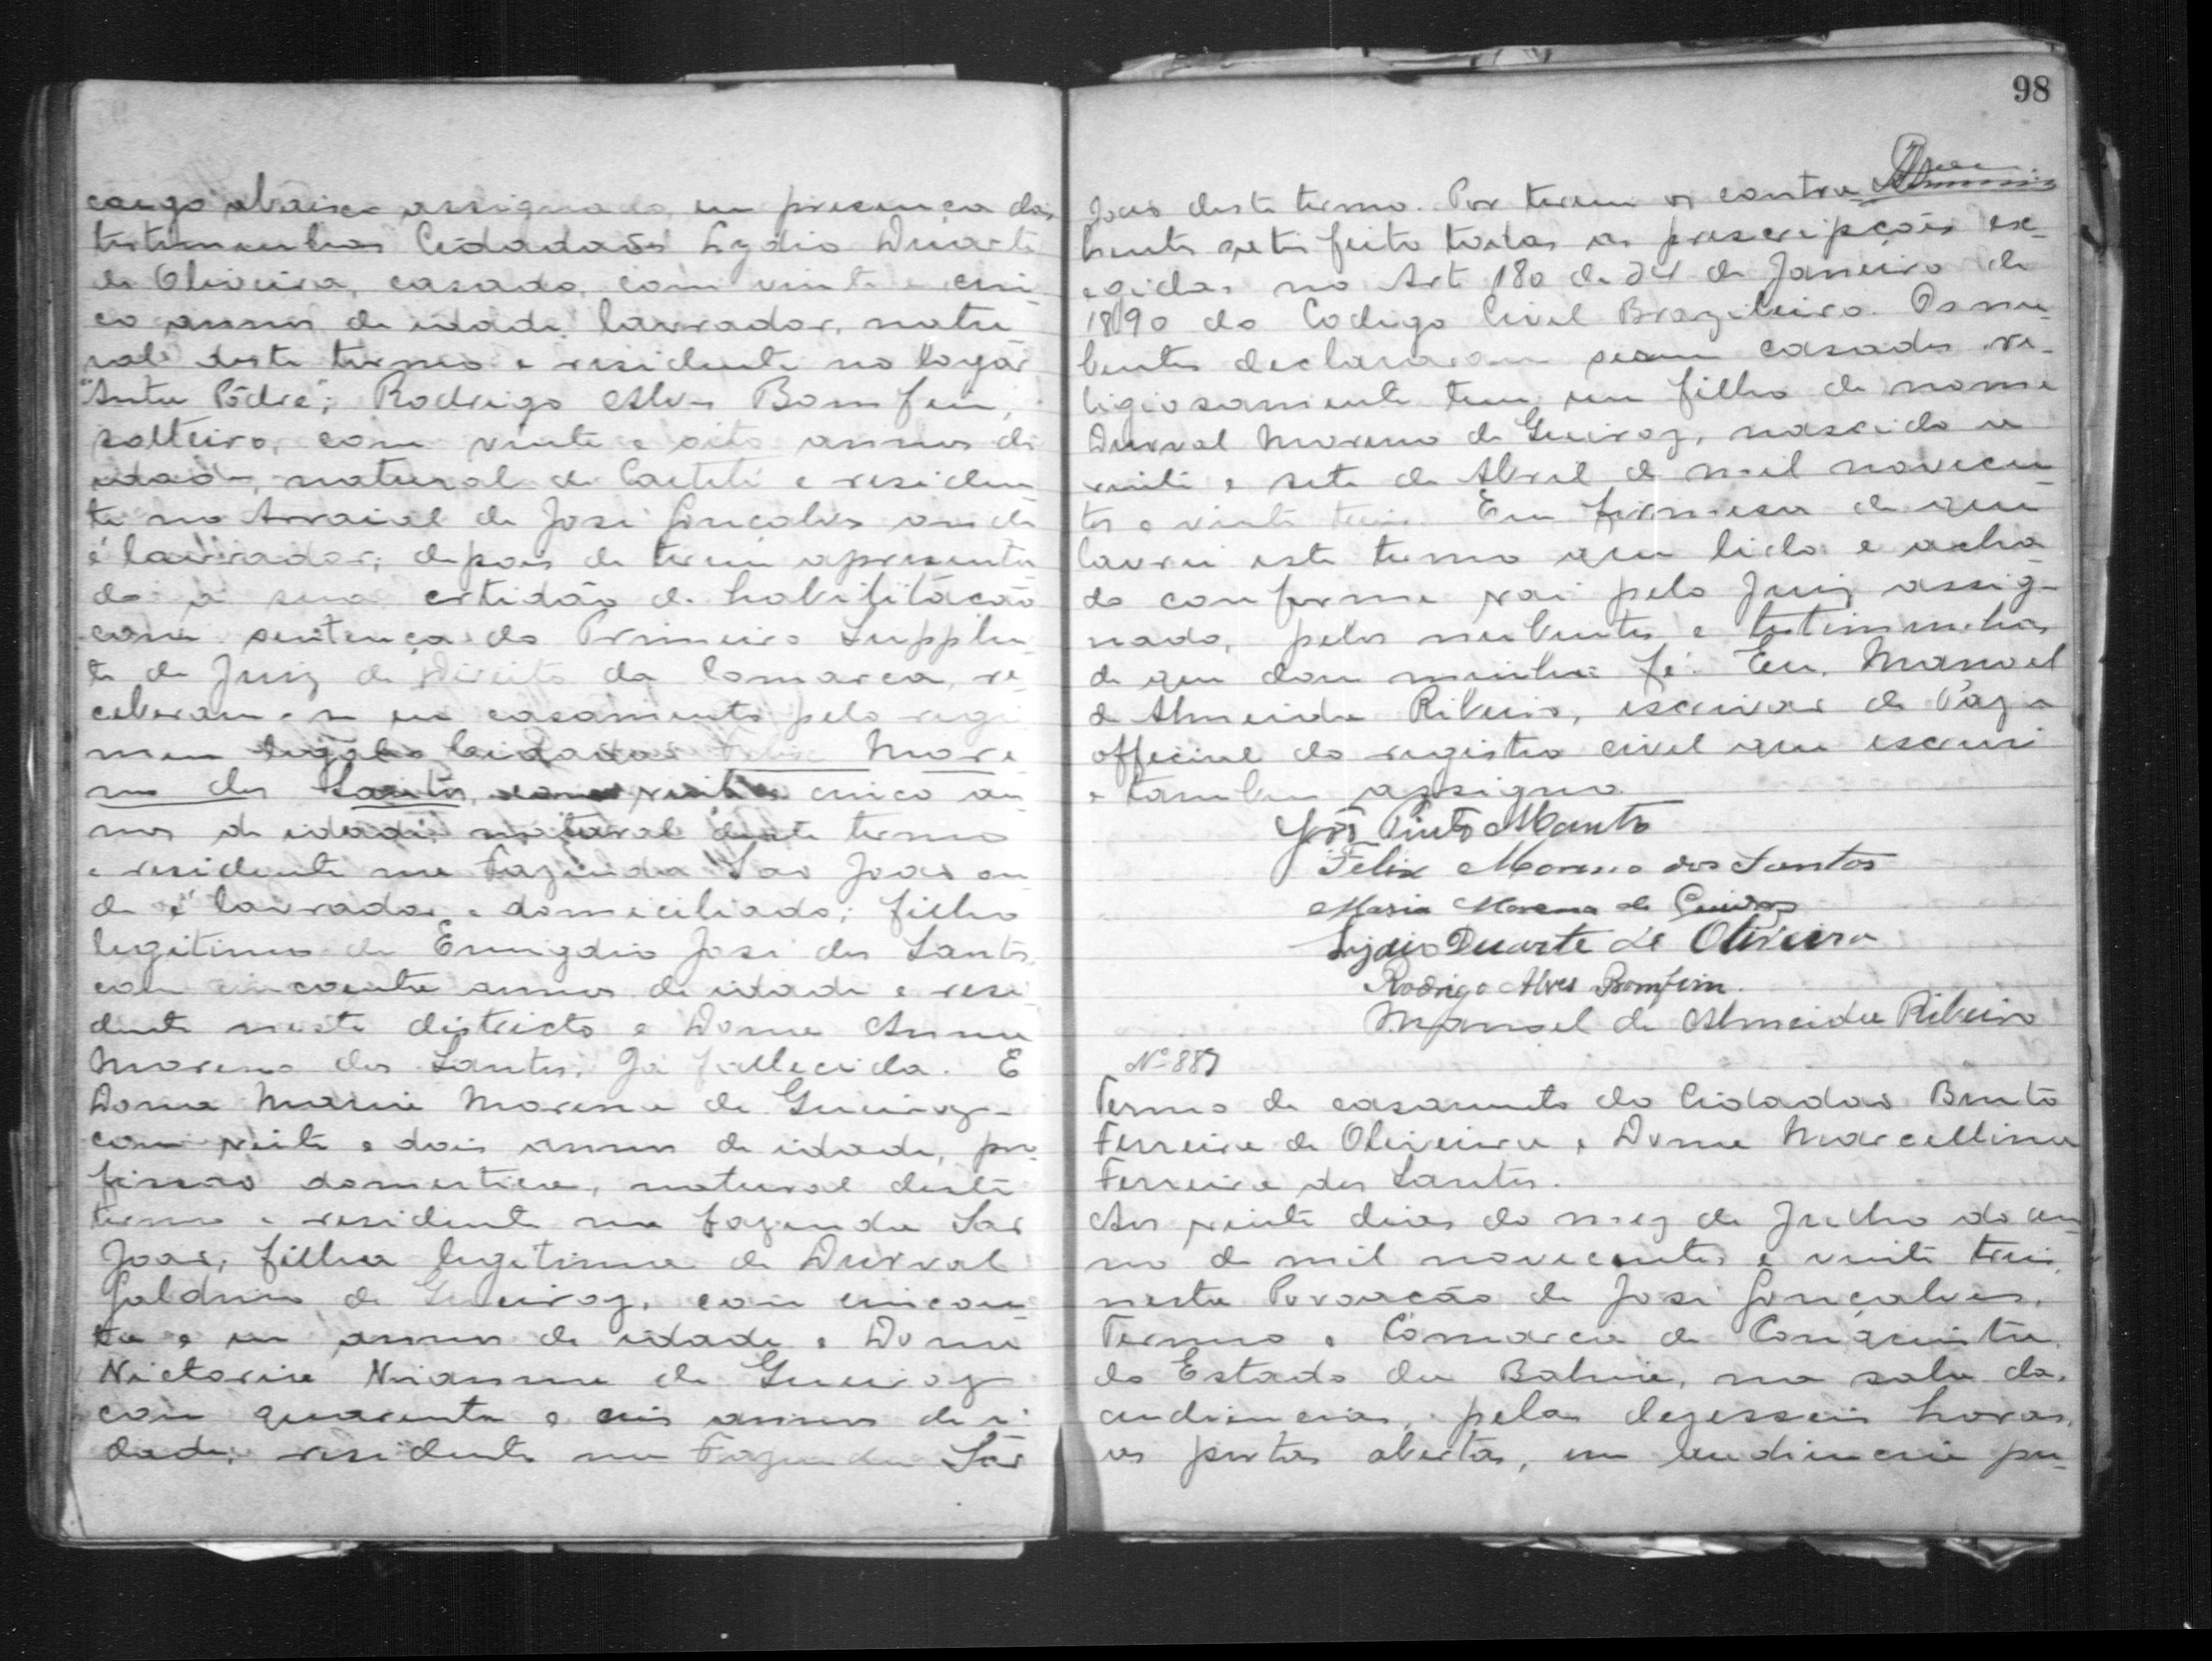 cargo abaixo assignado, em presença das
testemunhas Cidadãos Lydio Duarte
de Oliveira, casado, com vinte e cin-
co annos de idade, lavrador, natu
ral deste termo e residente no logar
"Antu Pódre"; Rodrigo Alves Bomfim,
solteiro, com vinte e oito annos de
idade, natural de Caeteté e residen
te no Arraial de José Gonçalves onde
é lavrador; depois de terem apresenta
do a sua certidão de habilitação
com sentença do Primeiro Supplen
te de Juiz de Direito da Comarca, re-
ceberam-se em casamento pelo regi
men legal o Cidadão Felix More
no dos Santos, com vinte e cinco an
nos de idade, natural deste termo
e residente na Fazenda São João on
de é lavrador e domiciliado; filho
legitimo de Emigdio José dos Santos,
com cincoenta annos de idade e resi
dente neste districto e Dona Anna
Moreno dos Santos, já fallecida. E
Dona Maria Morena de Queiroz
com vinte e dois annos de idade, pro
fissão domestica, natural deste
termo e residente na fazenda São
João, filha legitima de Durval
Galdino de Queiroz, com cincoen
ta e um annos de idade e Dona
Victoria de Queiroz
com quarenta e annos de i
dade, residente na Fazenda São
98
João deste termo. Por terem os contra
hente satisfeito todas as prescripções ex-
egidas no Art 180 de 24 de Janeiro de
1890 do Codigo Civel Brazileiro. Os nu-
bentes declararam serem casados re-
ligiosamente tem um filho de nome
Durval Moreno de Queiroz, nascido a
vinte e sete de Abril de mil novecen
tos e vinte treis. Em firmesa de que
lavrei este termo que lido e acha
do conforme vai pelo Juiz assig-
nado, pelos nubentes e testimunhas
de que dou minha fé. Eu, Manoel
de Almeida Ribeiro, escrivão de Paz e
official do registro civel que escrevi
e tambem assigno.
José Pinto
Felix Moreno dos Santos
Maria Morena de Queiroz
Lydio Duarte de Oliveira
Rodrigo Alves Bomfim.
Manoel de Almeida Ribeiro
Nº 887
Termo de casamento do Cidadão Bento
Ferreira de Oliveira e Dona Marcellina
Ferreira dos Santos.
Aos vinte dias do mez de Julho do an
no de mil novecentos e vinte treis,
nesta Povoação de José Gonçalves,
Termo e Comarca de Conquista
do Estado da Bahia, na sala das
audiencias, pelas dezesseis horas,
as portas abertas, em audiencia pu-